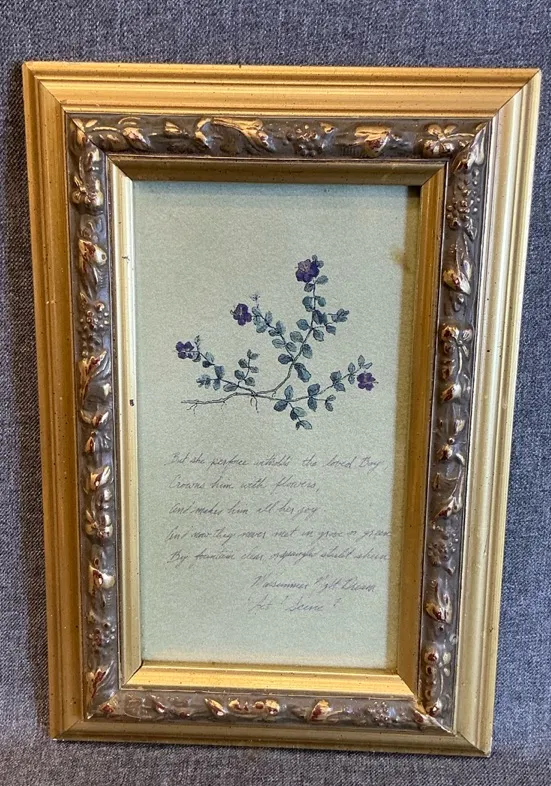 But she perforce witholds the loved Boy
Crowns him with flowers,
and makes him all her joy
And now they never met in grove or green
By fountain clear, or spangled starlit sheen
Midsummer Night Dream
Act Scene